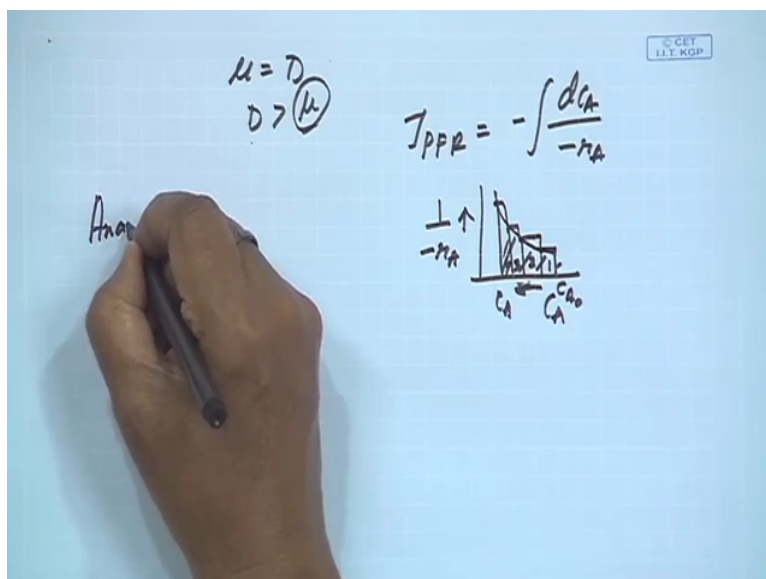 © CET
I.I.T. KGP
μ = D
D > μ
τPFR = - ∫ dCA / -rA
1 / -rA ↑
1
CA ← CA CA0
Ana